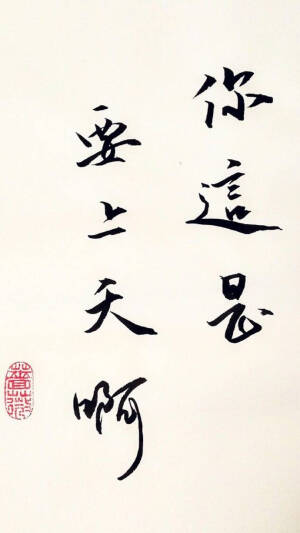 你這是
要上天啊